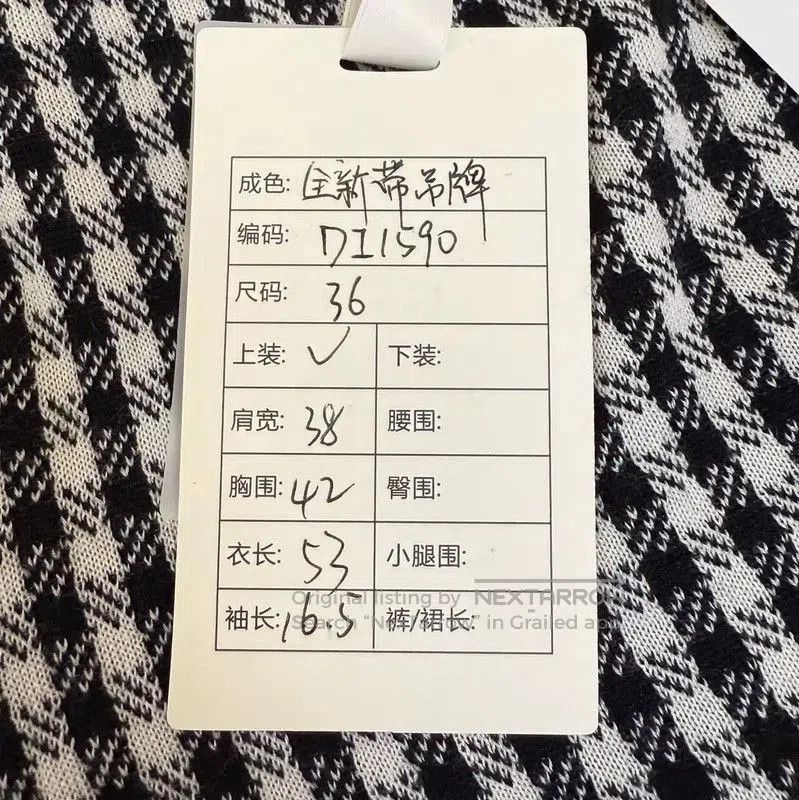 成色: 全新带吊牌
编码: DI1590
尺码: 36
上装: ✓ 下装:
肩宽: 38 腰围:
胸围: 42 臀围:
衣长: 53 小腿围:
袖长: 16.5 裤/裙长:
Original listing by NEXTARROW
Search "NextArrow" in Grailed app